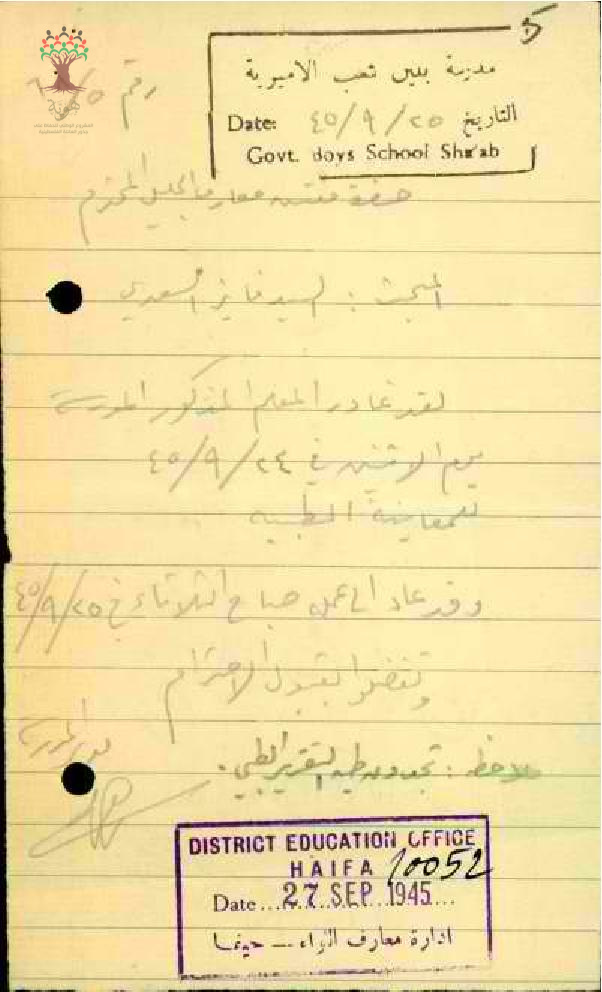 5
مدرسة بنين شعب الاميرية
Date: ٤٥/٩/٢٥ التاريخ
Govt. Boys School Sha'ab
رقم
حضرة مفتش معارف الجليل المحترم
المبحث : السيد فايز السعدي
لقد غادر المعلم المذكور المدرسة
يوم الاثنين في ٤٥/٩/٢٤
للمعاينة الطبية
وقد عاد الى عمله صباح الثلاثاء في ٤٥/٩/٢٥
وتفضلوا بقبول الاحترام
مدير المدرسة
ملاحظة : تجدون طيه التقرير الطبي .
DISTRICT EDUCATION OFFICE
HAIFA 10052
Date...27 SEP 1945....
ادارة معارف اللواء – حيفا